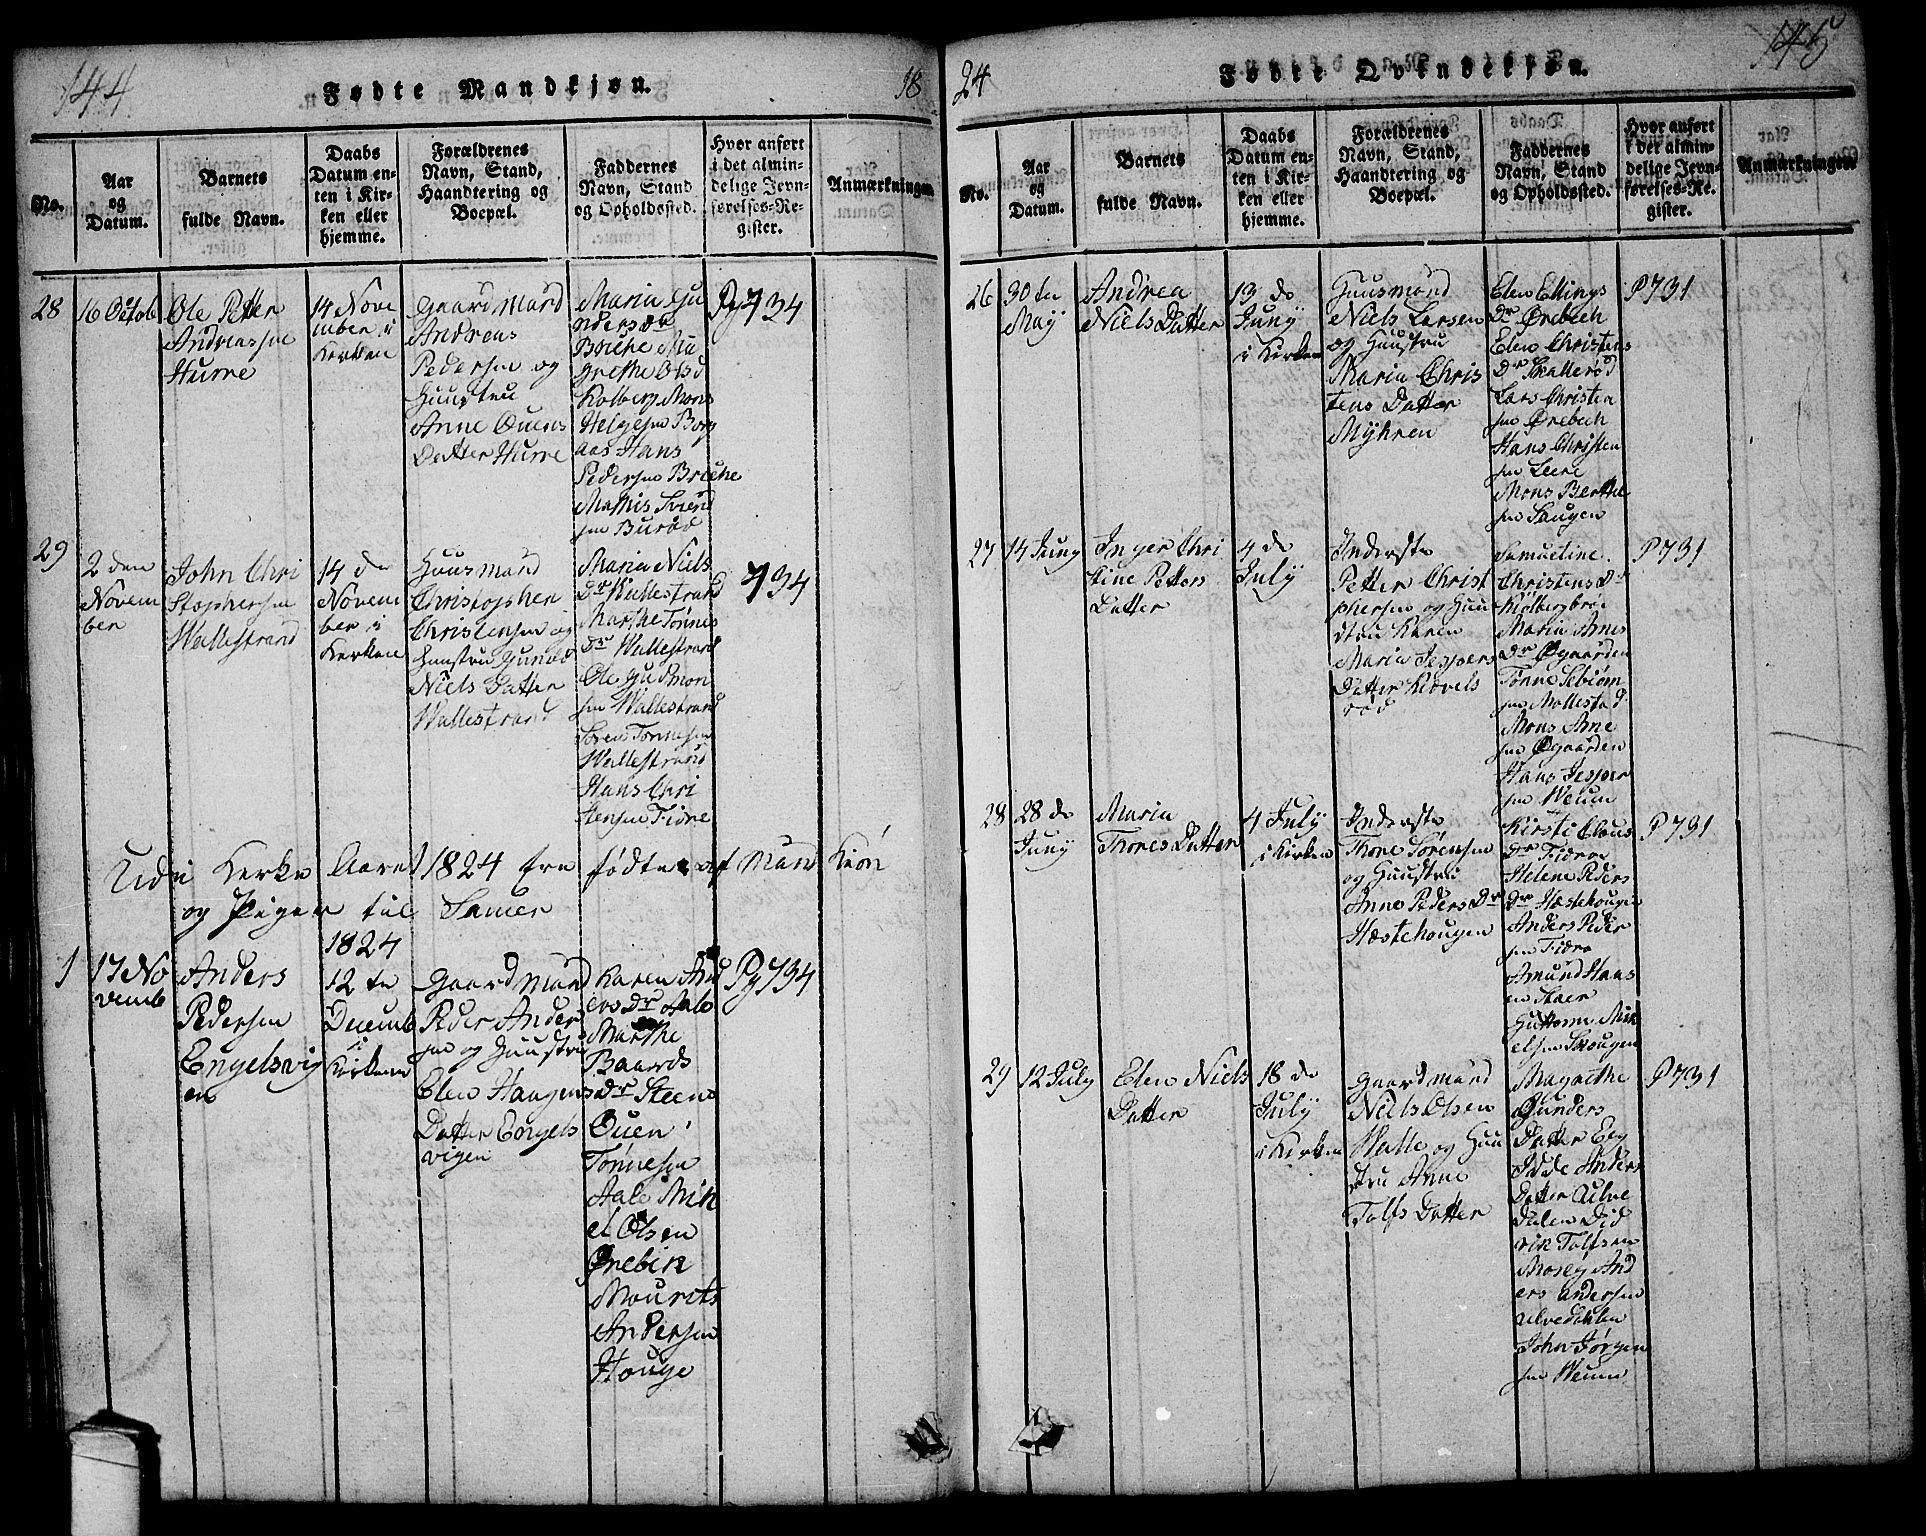 144
Fødte Mandkjøn.
18
No.
Aar
og
Datum.
Barnets
fulde Navn.
Daabs
Datum en-
ten i Kir-
ken eller
hjemme.
Forældrenes
Navn, Stand,
Haandtering og
Boepæl.
Faddernes
Navn, Stand
og Opholdssted.
Hvor anført
i det almin-
delige Jevn-
førelses-Re-
gister.
Anmærkninger.
28
16 Octob
Ole Petter
Andreassen
Hurre
14 Nove
mber i
Kerken
Gaard Mand
Andreas
Pedersen og
Huustru
Anne Ouens
Datter Hurre
Maria
Grethe Olsd
Kolberg Mons
Helgesen Borg
aas Hans
Pedersen
Mathis
sen Buraas
Pg 734
29
2 den
Novem
ber
John Chri
stophersen
Wallestrand
14 den
Novem
ber i
Kerken
Huusmand
Christopher
Christensen og
Huustru
Niels Datter
Wallestrand
Maria Niels
Dr Wallestrand
Marthe Tønnes
Dr Wallestrand
Ole Gudmon
sen Wallestrand
Søren Tønnesen
Wallestrand
Hans Chri
stensen Fiøre
734
Udi Kerke Aaret 1824 ere fødte af Mand Kiøn
og Piger til Samer
1824
1
17 No
vemb
Anders
Pedersen
Engelsvig
en
12 te
Decemb
i
Kirken
Gaard Mand
Peder Anders
sen og Huustru
Elen Haagens
Datter Engels
vigen
Karen And
ers Dr Aale
Marthe
Baards
Dr Steen
Ouen
Tønnesen
Aale Mik
el Olsen
Ørebek
Mourits
Andersen
Houge
Pg 734
24
Fødte Qvindekjøn.
145
No.
Aar
og
Datum.
Barnets
fulde Navn.
Daabs
Datum en-
ten i Kir-
ken eller
hjemme.
Forældrenes
Navn, Stand,
Haandtering og
Boepæl.
Faddernes
Navn, Stand
og Opholdssted.
Hvor anført
i der almin-
delige Jevn-
førelses-Re-
gister.
Anmærkninger
26
30 te
Maij
Andrea
Niels Datter
13 de
Junij
i Kirken
Huusmand
Niels Larsen
og Huustru
Maria Chris
tens Datter
Myhren
Elen Ellings
Dr Ørebech
Elen Christens
Dr Skallerød
Lars Christen
sen Ørebech
Hans Christen
sen Leere
Mons Berthe
sen Haugen
P 731
27
14 Junij
Inger Chri
stine Petters
Datter
4 de
Julij
Inderste
Petter Christ
phersen og Huu
stru Karen
Maria Jespers
Datter Rævels
rød
Samueline
Christens Dr
Kiølbergbroe
Maria Arnes
Dr Øgaarden
Tønne Sebiørn
sen Mollestad
Mons Arne
sen Øgaarden
Hans Jesper
sen Weum
P 731
28
28 de
Junij
Maria
Thores Datter
4 Julij
i Kirken
Inderste
Thore Sørensen
og Huustru
Anne Peders Dr
Hæstehougen
Kirsti Claus
Dr Fidrae
Helene Peders
Dr Hæstehougen
Anders Peder
sen Fidra
Amund Hans
en Staer
Guttorm Mik
elsen Skougen
P 731
29
12 Julij
Elen Niels
Datter
18 de
Julij
i Kirken
Gaard mand
Niels Olsen
Walle og Huu
stru Anne
Tolfs Datter
Magrethe
Gunders
Datter Eeg
Idde Anders
Datter Ulve
dalen Did
rik Tolfsen
Moseg And
ers Andersen
Ulvedahlen
John Jørgen
sen Weum
P 731